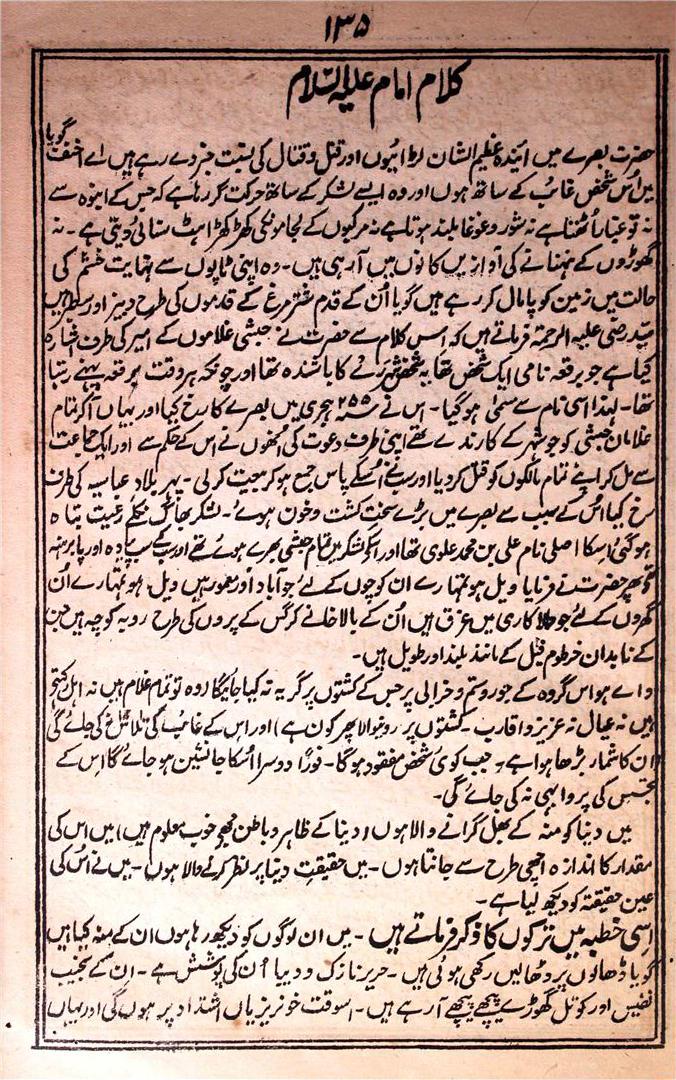 ۱۳۵
کلام امام علیہ السلام
حضرت بصرے میں آیندہ عظیم الشان لڑائیوں اور قتل و قتال کی نسبت خبر دے رہے ہیں اے احنف گویا
میں اُس شخص غائب کے ساتھ ہوں اور وہ ایسے لشکر کے ساتھ حرکت کر رہا ہے کہ جس کے انبوہ سے
نہ تو غبار اُٹھتا ہے نہ شور و غوغا بلند ہوتا ہے نہ مرکبوں کے لجاموں کی کھڑکھڑاہٹ سنائی دیتی ہے۔ نہ
گھوڑوں کے ہنہنانے کی آوازیں کانوں میں آرہی ہیں۔ وہ اپنی ٹاپوں سے نہایت خشم کی
حالت میں زمین کو پامال کر رہے ہیں گویا اُن کے قدم شتر مرغ کے قدموں کی طرح دبیز اور سطبر ہیں
سید رضی علیہ الرحمۃ فرماتے ہیں کہ اس کلام سے حضرت نے حبشی غلاموں کے امیر کی طرف اشارہ
کیا ہے جو برقعہ نامی ایک شخص تھا یہ شخص شہر رَے کا باشندہ تھا اور چونکہ ہر وقت برقعہ پہنے رہتا
تھا۔ لہٰذا اسی نام سے مسمیٰ ہوگیا۔ اس نے ۲۵۵ ہجری میں بصرے کا رخ کیا اور یہاں آکر تمام
غلامان حبشی کو جو شہر کے کارندے تھے اپنی طرف دعوت کی اُنھوں نے اس کے حکم سے اور ایک جماعت
سے مل کر اپنے تمام مالکوں کو قتل کر دیا اور سب نے اُسکے پاس جمع ہو کر بیعت کر لی۔ پھر بلاد عباسیہ کی طرف
رخ کیا اُس کے سبب سے بصرے میں بڑے سخت کشت و خون ہوئے۔ لشکر بھاگ نکلے رعیت تباہ
ہوگئی اسکا اصلی نام علی بن محمد علوی تھا اور اسکے لشکر میں تمام حبشی بھرے ہوئے تھے اور سب کے سب پیادہ اور پا برہنہ
تھے پھر حضرت نے فرمایا ویل ہو تمہارے ان کوچوں کے لئے جو آباد اور معمور ہیں ویل ہو تمہارے اُن
گھروں کے لئے جو طلا کاری میں غرق ہیں اُن کے بالاخانے کرگس کے پروں کی طرح روبہ کوچہ ہیں جن
کے نابدان خرطوم فیل کے مانند بلند اور طویل ہیں۔
وائے ہو اس گروہ کے جور و ستم و خرابی پر جس کے کشتوں پر گریہ نہ کیا جائیگا (وہ تو تمام غلام ہیں نہ اہل رکھتے
ہیں نہ عیال نہ عزیز و اقارب۔ کشتوں پر رونیوالا پھر کون ہے) اور اس کے غائب کی تلاش نہ کی جائے گی
ان کا شمار بڑھا ہوا ہے۔ جب کوئی شخص مفقود ہوگا۔ فوراً دوسرا اُسکا جانشین ہو جائے گا اس کے
تجسّس کی پروا بھی نہ کی جائے گی۔
میں دنیا کو منہ کے بھل گرانے والا ہوں (دنیا کے ظاہر و باطن مجھے خوب معلوم ہیں) میں اس کی
مقدار کا اندازہ اچھی طرح سے جانتا ہوں۔ میں حقیقتِ دنیا پر نظر کرنے والا ہوں۔ میں نے اُس کی
عین حقیقۃ کو دیکھ لیا ہے۔
اسی خطبہ میں ترکوں کا ذکر فرماتے ہیں۔ میں ان لوگوں کو دیکھ رہا ہوں ان کے منہ کیا ہیں
گویا ڈھالوں پر ڈھالیں رکھی ہوئی ہیں۔ حریر نازک و دیبا اُن کی پوشش ہے۔ ان کے نجیب
نفیس اور کوتل گھوڑے پیچھے پیچھے آرہے ہیں۔ اسوقت خونریزیاں اشتداد پر ہوں گی اور یہاں